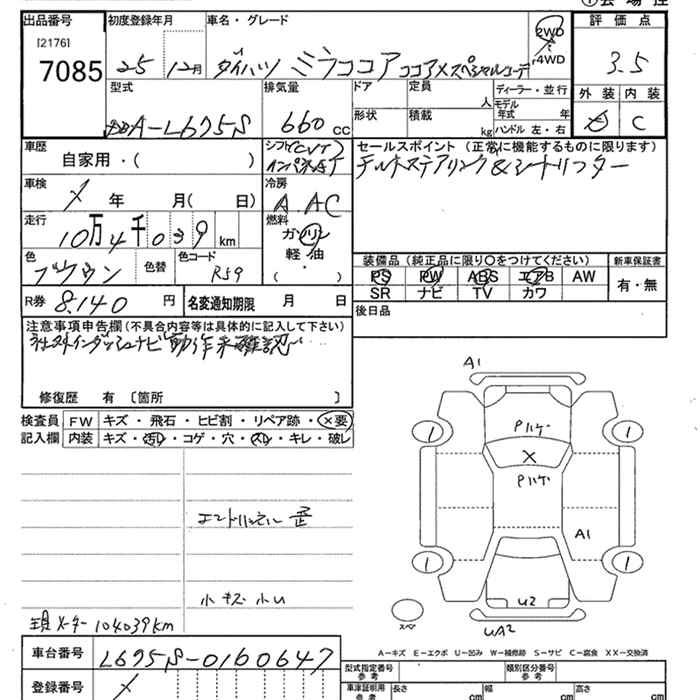 出品番号
[2176]
7085
初度登録年月
25 12月
車名・グレード
ダイハツ ミラココア ココアXスペシャルコーデ
2WD
4WD
評価点
3.5
外装 内装
C
型式
DBA-L675S
排気量
660 cc
ドア
定員
人
形状
積載
kg
ディーラー・並行
モデル年式 年
ハンドル 左・右
車歴
自家用・( )
シフト(CVT)
インパネAT
セールスポイント (正常に機能するものに限ります)
チルトステアリング&シートリフター
車検
年 月( 日)
冷房
A AC
走行
10万4千039 km
燃料
ガソリン
軽・油
・( )
色
ブラウン
色替
色コード
R59
装備品 (純正品に限り○をつけてください)
PS PW ABS エアB AW
SR ナビ TV カワ
新車保証書
有・無
R券 8,140 円
名変通知期限 月 日
後日品
注意事項申告欄 (不具合内容等は具体的に記入して下さい)
社外インダッシュナビ動作未確認
修復歴 有 〔箇所 〕
検査員記入欄
FW キズ・飛石・ヒビ割・リペア跡・×要
内装 キズ・汚レ・コゲ・穴・スレ・キレ・破レ
エンドリンホル 歪
小キズ 小U
現メーター 104039km
A1
Pハゲ
X
Pハゲ
A1
U2
UA2
1
1
1
1
スペア
A-キズ E-エクボ U-凹み W-補修跡 S-サビ C-腐食 XX-交換済
車台番号 L675S-0160647
登録番号
型式指定番号 参考
類別区分番号 参考
車津証明用 参考
長さ cm
幅 cm
高さ cm